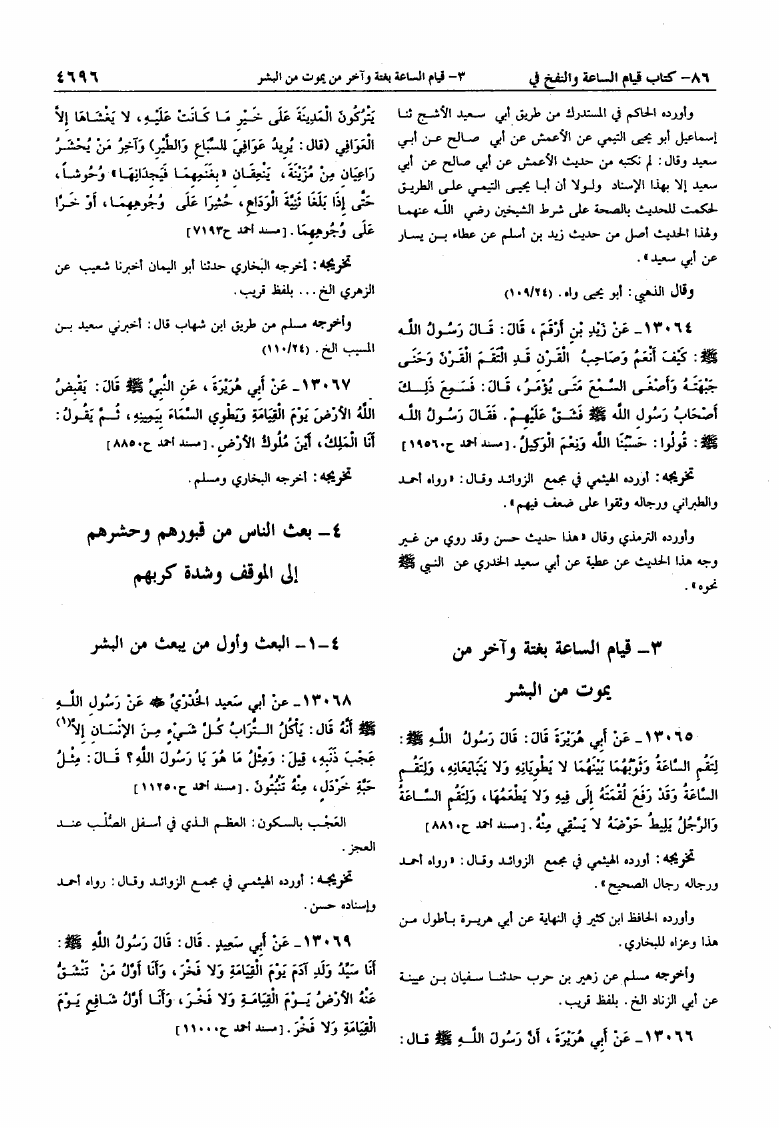 ٨٦- كتاب قيام الساعة والنفخ في
٣- قيام الساعة بغتة وآخر من يموت من البشر
٤٦٩٦
وأورده الحاكم في المستدرك من طريق أبي سعيد الأشج ثنا
إسماعيل أبو يحيى التيمي عن الأعمش عن أبي صالح عن أبي
سعيد وقال: لم نكتبه من حديث الأعمش عن أبي صالح عن أبي
سعيد إلا بهذا الإسناد ولولا أن أبا يحيى التيمي على الطريق
لحكمت للحديث بالصحة على شرط الشيخين رضي الله عنهما
ولهذا الحديث أصل من حديث زيد بن أسلم عن عطاء بن يسار
عن أبي سعيد».
وقال الذهبي: أبو يحيى واه. (١٠٩/٢٤)
١٣٠٦٤- عَنْ زَيْدِ بْنِ أَرْقَمَ، قَالَ: قَالَ رَسُولُ اللَّهِ
ﷺ: كَيْفَ أَنْعَمُ وَصَاحِبُ الْقَرْنِ قَدِ الْتَقَمَ الْقَرْنَ وَحَنَى
جَبْهَتَهُ وَأَصْغَى السَّمْعَ مَتَى يُؤْمَرُ، قَالَ: فَسَمِعَ ذَلِكَ
أَصْحَابُ رَسُولِ اللَّهِ ﷺ فَشَقَّ عَلَيْهِمْ. فَقَالَ رَسُولُ اللَّهِ
ﷺ: قُولُوا: حَسْبُنَا اللَّهُ وَنِعْمَ الْوَكِيلُ. [مسند أحمد ح١٩٥٦٠]
تخريجه: أورده الهيثمي في مجمع الزوائد وقال: «رواه أحمد
والطبراني ورجاله وثقوا على ضعف فيهم».
وأورده الترمذي وقال «هذا حديث حسن وقد روي من غير
وجه هذا الحديث عن عطية عن أبي سعيد الخدري عن النبي ﷺ
نحوه».
٣- قيام الساعة بغتة وآخر من
يموت من البشر
١٣٠٦٥- عَنْ أَبِي هُرَيْرَةَ قَالَ: قَالَ رَسُولُ اللَّهِ ﷺ:
لِتَقُمِ السَّاعَةُ وَثَوْبُهُمَا بَيْنَهُمَا لا يَطْوِيَانِهِ وَلا يَتَبَايَعَانِهِ، وَلِتَقُمِ
السَّاعَةُ وَقَدْ رَفَعَ لُقْمَتَهُ إِلَى فِيهِ وَلا يَطْعَمُهَا، وَلِتَقُمِ السَّاعَةُ
وَالرَّجُلُ يَلِيطُ حَوْضَهُ لا يَسْقِي مِنْهُ. [مسند أحمد ح٨٨١٠]
تخريجه: أورده الهيثمي في مجمع الزوائد وقال: «رواه أحمد
ورجاله رجال الصحيح».
وأورده الحافظ ابن كثير في النهاية عن أبي هريرة بأطول من
هذا وعزاه للبخاري.
وأخرجه مسلم عن زهير بن حرب حدثنا سفيان بن عيينة
عن أبي الزناد الخ. بلفظ قريب.
١٣٠٦٦- عَنْ أَبِي هُرَيْرَةَ، أَنَّ رَسُولَ اللَّهِ ﷺ قال:
يَتْرُكُونَ الْمَدِينَةَ عَلَى خَيْرِ مَا كَانَتْ عَلَيْهِ، لا يَغْشَاهَا إِلاَّ
الْعَوَافِي (قال: يُرِيدُ عَوَافِيَ السِّبَاعِ وَالطَّيْرِ) وَآخِرُ مَنْ يُحْشَرُ
رَاعِيَانِ مِنْ مُزَيْنَةَ، يَنْعِقَانِ «بِغَنَمِهِمَا فَيَجِدَانِهَا» وُحُوشاً،
حَتَّى إِذَا بَلَغَا ثَنِيَّةَ الْوَدَاعِ، حُشِرَا عَلَى وُجُوهِهِمَا، أَوْ خَرَّا
عَلَى وُجُوهِهِمَا. [مسند أحمد ح٧١٩٣]
تخريجه: أخرجه البخاري حدثنا أبو اليمان أخبرنا شعيب عن
الزهري الخ... بلفظ قريب.
وأخرجه مسلم من طريق ابن شهاب قال: أخبرني سعيد بن
المسيب الخ. (١١٠/٢٤)
١٣٠٦٧- عَنْ أَبِي هُرَيْرَةَ، عَنِ النَّبِيِّ ﷺ قَالَ: يَقْبِضُ
اللَّهُ الأَرْضَ يَوْمَ الْقِيَامَةِ وَيَطْوِي السَّمَاءَ بِيَمِينِهِ، ثُمَّ يَقُولُ:
أَنَا الْمَلِكُ، أَيْنَ مُلُوكُ الأَرْضِ. [مسند أحمد ح٨٨٥٠]
تخريجه: أخرجه البخاري ومسلم.
٤- بعث الناس من قبورهم وحشرهم
إلى الموقف وشدة كربهم
٤-١- البعث وأول من يبعث من البشر
١٣٠٦٨- عن أبي سَعيد الخُدْرِيِّ ﷺ عَنْ رَسُولِ اللَّهِ
ﷺ أَنَّهُ قَالَ: يَأْكُلُ التُّرَابُ كُلَّ شَيْءٍ مِنَ الإِنْسَانِ إِلاَّ(١)
عَجْبَ ذَنَبِهِ، قِيلَ: وَمِثْلُ مَا هُوَ يَا رَسُولَ اللَّهِ؟ قَالَ: مِثْلُ
حَبَّةِ خَرْدَلٍ، مِنْهُ تَنْبُتُونَ. [مسند أحمد ح١١٢٥٠]
العَجْب بالسكون: العظم الذي في أسفل الصُّلْب عند
العجز.
تخريجه: أورده الهيثمي في مجمع الزوائد وقال: رواه أحمد
وإسناده حسن.
١٣٠٦٩- عَنْ أَبِي سَعِيدٍ. قَالَ: قَالَ رَسُولُ اللَّهِ ﷺ:
أَنَا سَيِّدُ وَلَدِ آدَمَ يَوْمَ الْقِيَامَةِ وَلا فَخْرَ، وَأَنَا أَوَّلُ مَنْ تَنْشَقُّ
عَنْهُ الأَرْضُ يَوْمَ الْقِيَامَةِ وَلا فَخْرَ، وَأَنَا أَوَّلُ شَافِعٍ يَوْمَ
الْقِيَامَةِ وَلا فَخْرَ. [مسند أحمد ح١١٠٠٠]